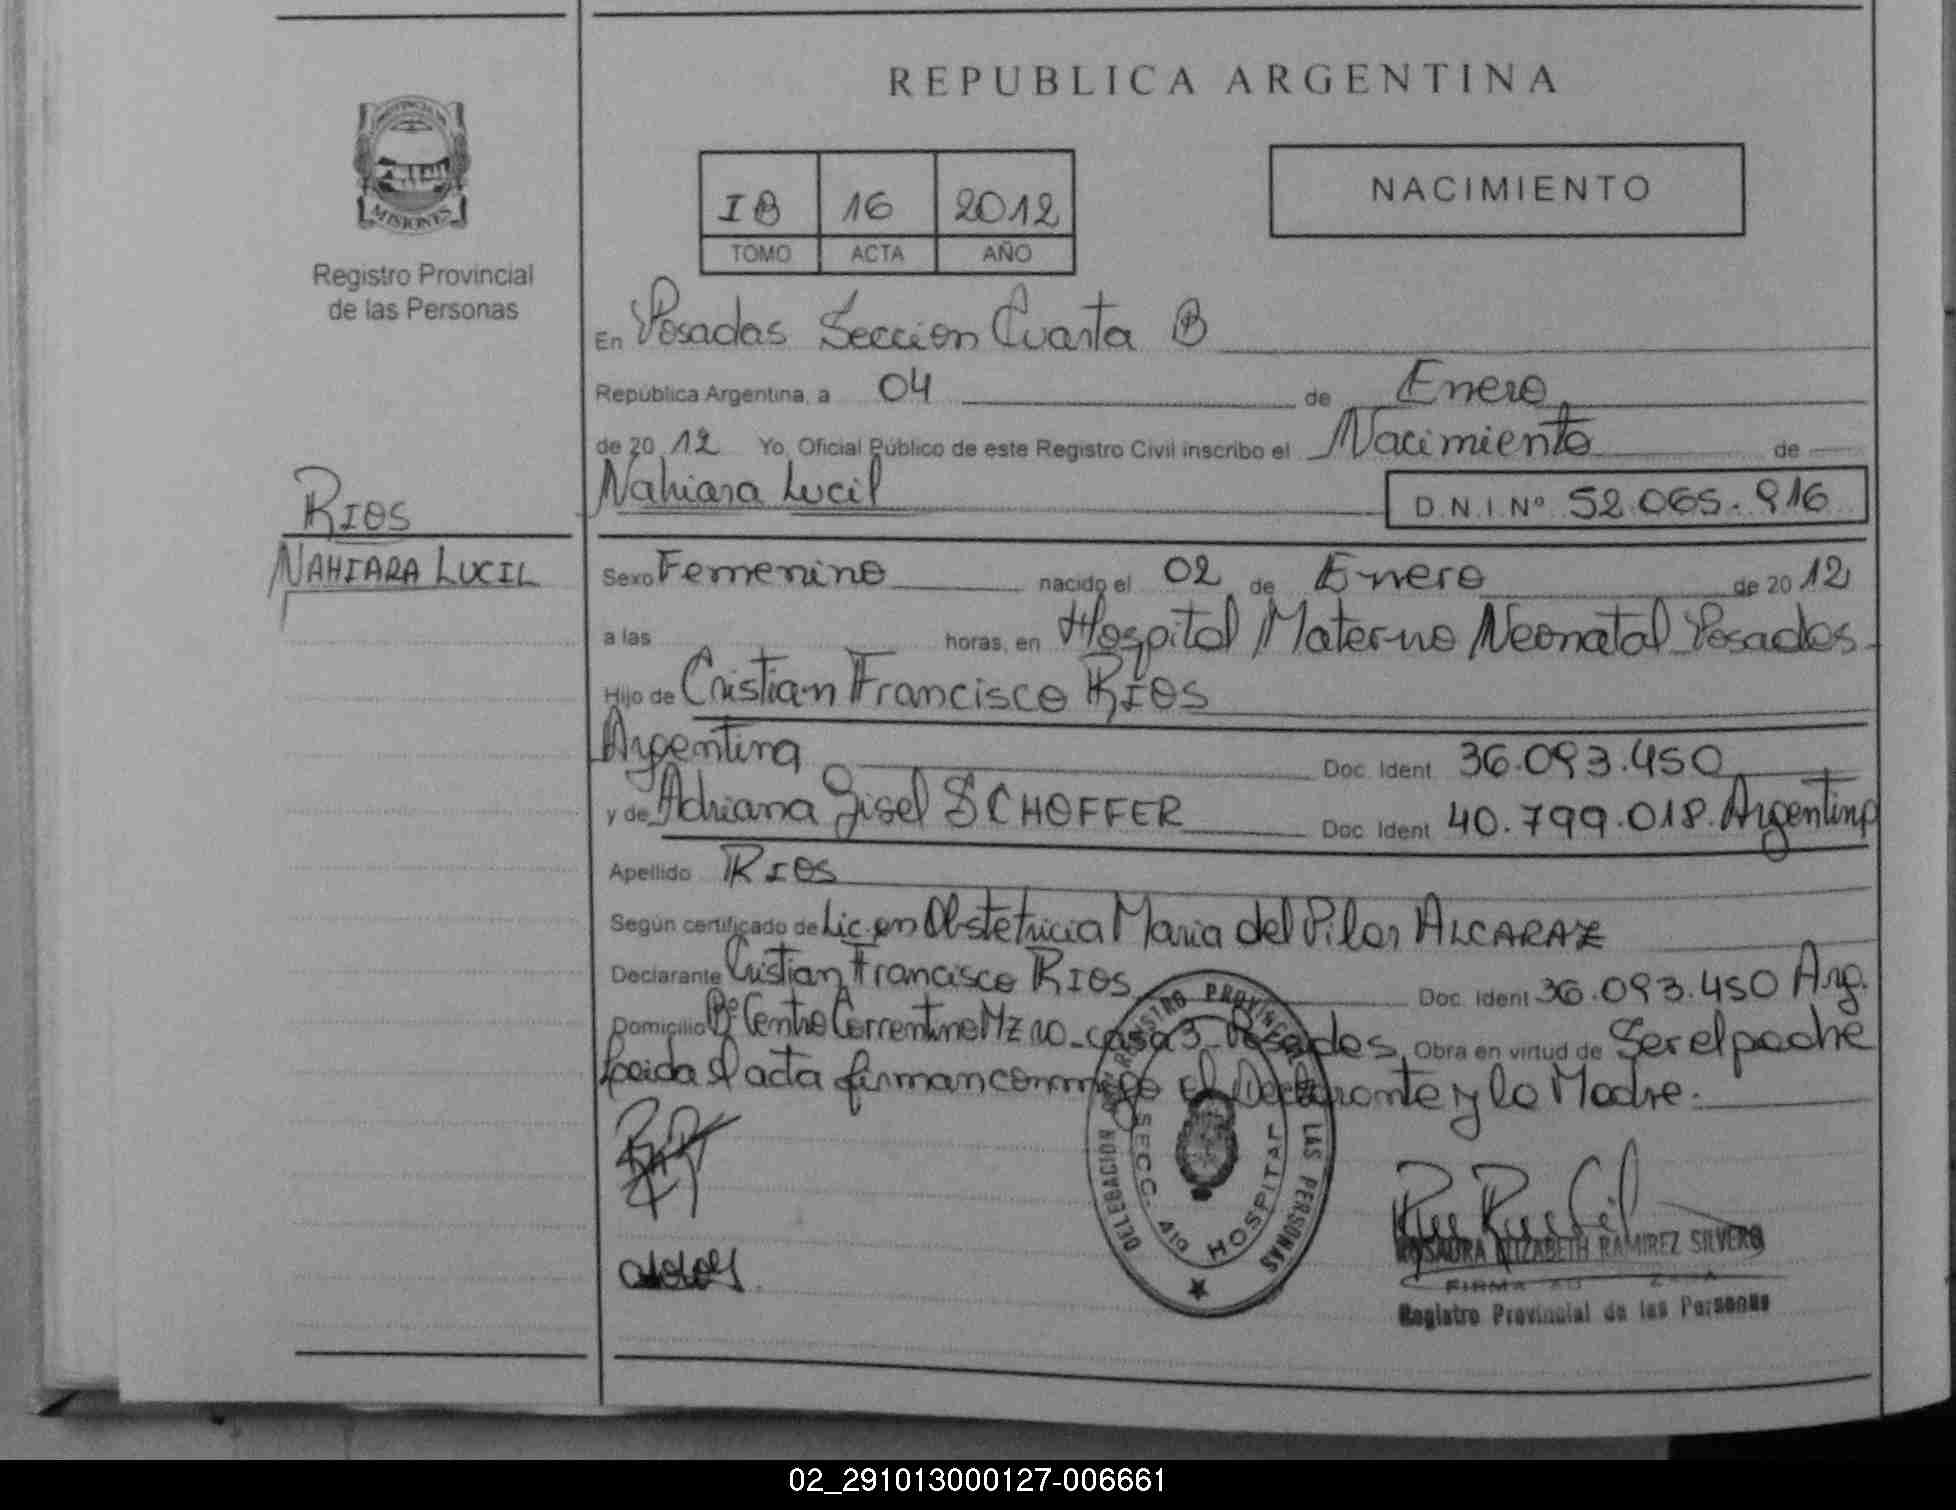 REPUBLICA ARGENTINA
PROVINCIA DE
MISIONES
Registro Provincial
de las Personas
NACIMIENTO
IB 16 2012
TOMO ACTA AÑO
En Posadas Seccion Cuarta B
República Argentina, a 04 de Enero
de 20 12 Yo, Oficial Público de este Registro Civil inscribo el Nacimiento de
Nahiara Lucil D.N.I. Nº 52.065.916
RIOS
NAHIARA LUCIL
Sexo Femenino nacido el 02 de Enero de 20 12
a las horas, en Hospital Materno Neonatal Posadas
Hijo de Cristian Francisco RIOS
Argentina Doc. Ident. 36.093.450
y de Adriana Gisel SCHOFFER Doc. Ident. 40.799.018. Argentina
Apellido RIOS
Según certificado de Lic. en Obstetricia Maria del Pilar ALCARAZ
Declarante Cristian Francisco RIOS Doc. Ident 36.093.450 Arg.
Domicilio Bº Centro Correntino Mz 10 - casa 3 - Posadas, Obra en virtud de Ser el padre
Leida el acta firman conmigo el Declarante y la Madre.
DELEGACION REGISTRO PROVINCIAL LAS PERSONAS
SECC. HOSPITAL
ROSAURA ELIZABETH RAMIREZ SILVERO
FIRMA
Registro Provincial de las Personas
02_291013000127-006661